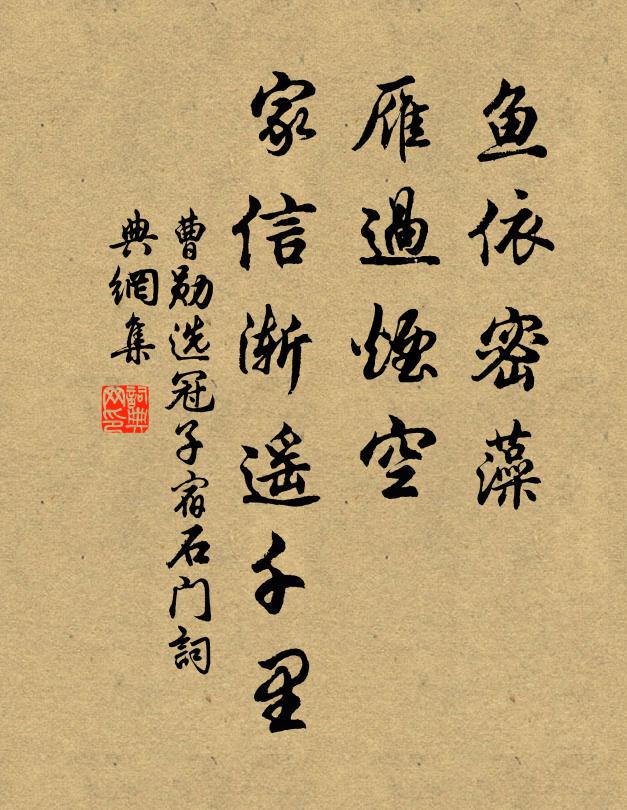 鱼依密藻
雁過煙空
家信渐遥千里
曹勋选冠子宿石门詞
典網集
詞典网印